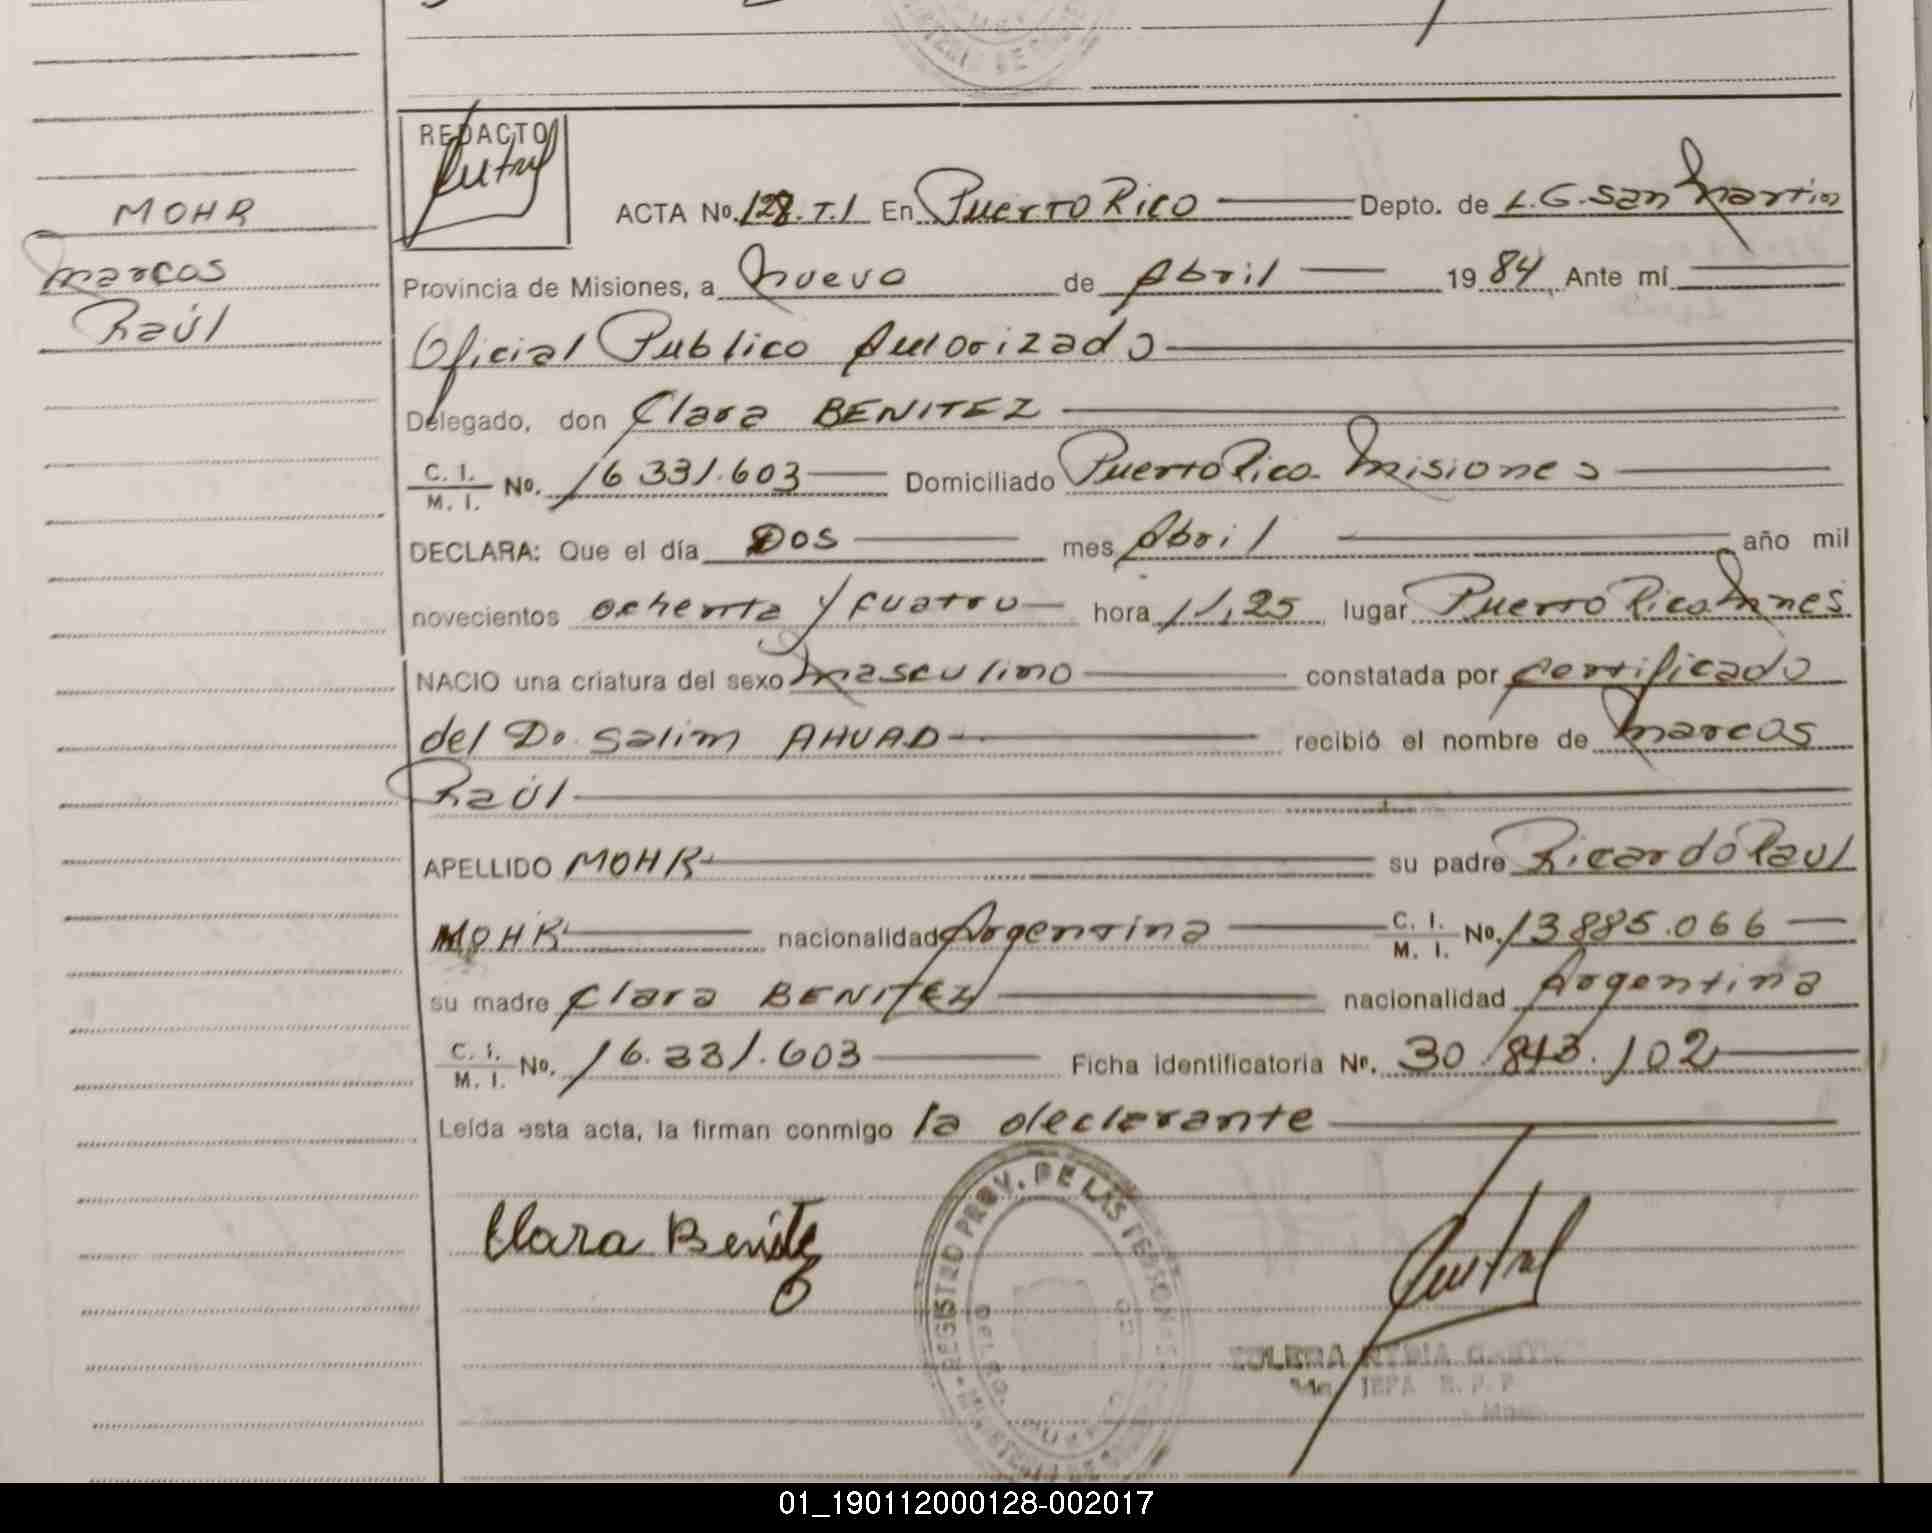 MOHR
Marcos
Raúl
REDACTO
ACTA No. 128. T.I En Puerto Rico Depto. de L.G. San Martin
Provincia de Misiones, a Nueve de Abril 1984, Ante mí
Oficial Publico Autorizado
Delegado, don Clara BENITEZ
C. I.
M. I. No. 16 331.603 Domiciliado Puerto Rico. Misiones
DECLARA: Que el día Dos mes Abril año mil
novecientos ochenta y cuatro hora 11,25 lugar Puerto Rico Mnes.
NACIO una criatura del sexo masculino constatada por certificado
del Dr. Salim AHUAD recibió el nombre de Marcos
Raúl
APELLIDO MOHR su padre Ricardo Raul
MOHR nacionalidad Argentina C. I.
M. I. No. 13885.066
su madre Clara BENITEZ nacionalidad Argentina
C. I.
M. I. No. 16.331.603 Ficha identificatoria No. 30.843.102
Leída esta acta, la firman conmigo la declarante
Clara Benitez
REGISTRO PROV. DE LAS PERSONAS
01_190112000128-002017